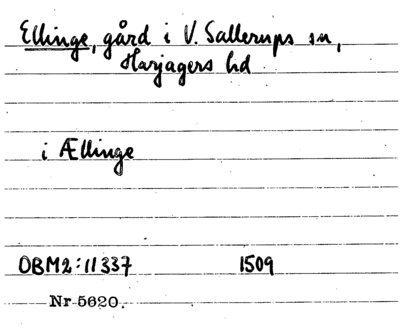 Ellinge, gård i V. Sallerups sn,
Harjagers hd
i Ællinge
OBM2:11337 1509
Nr 5620.